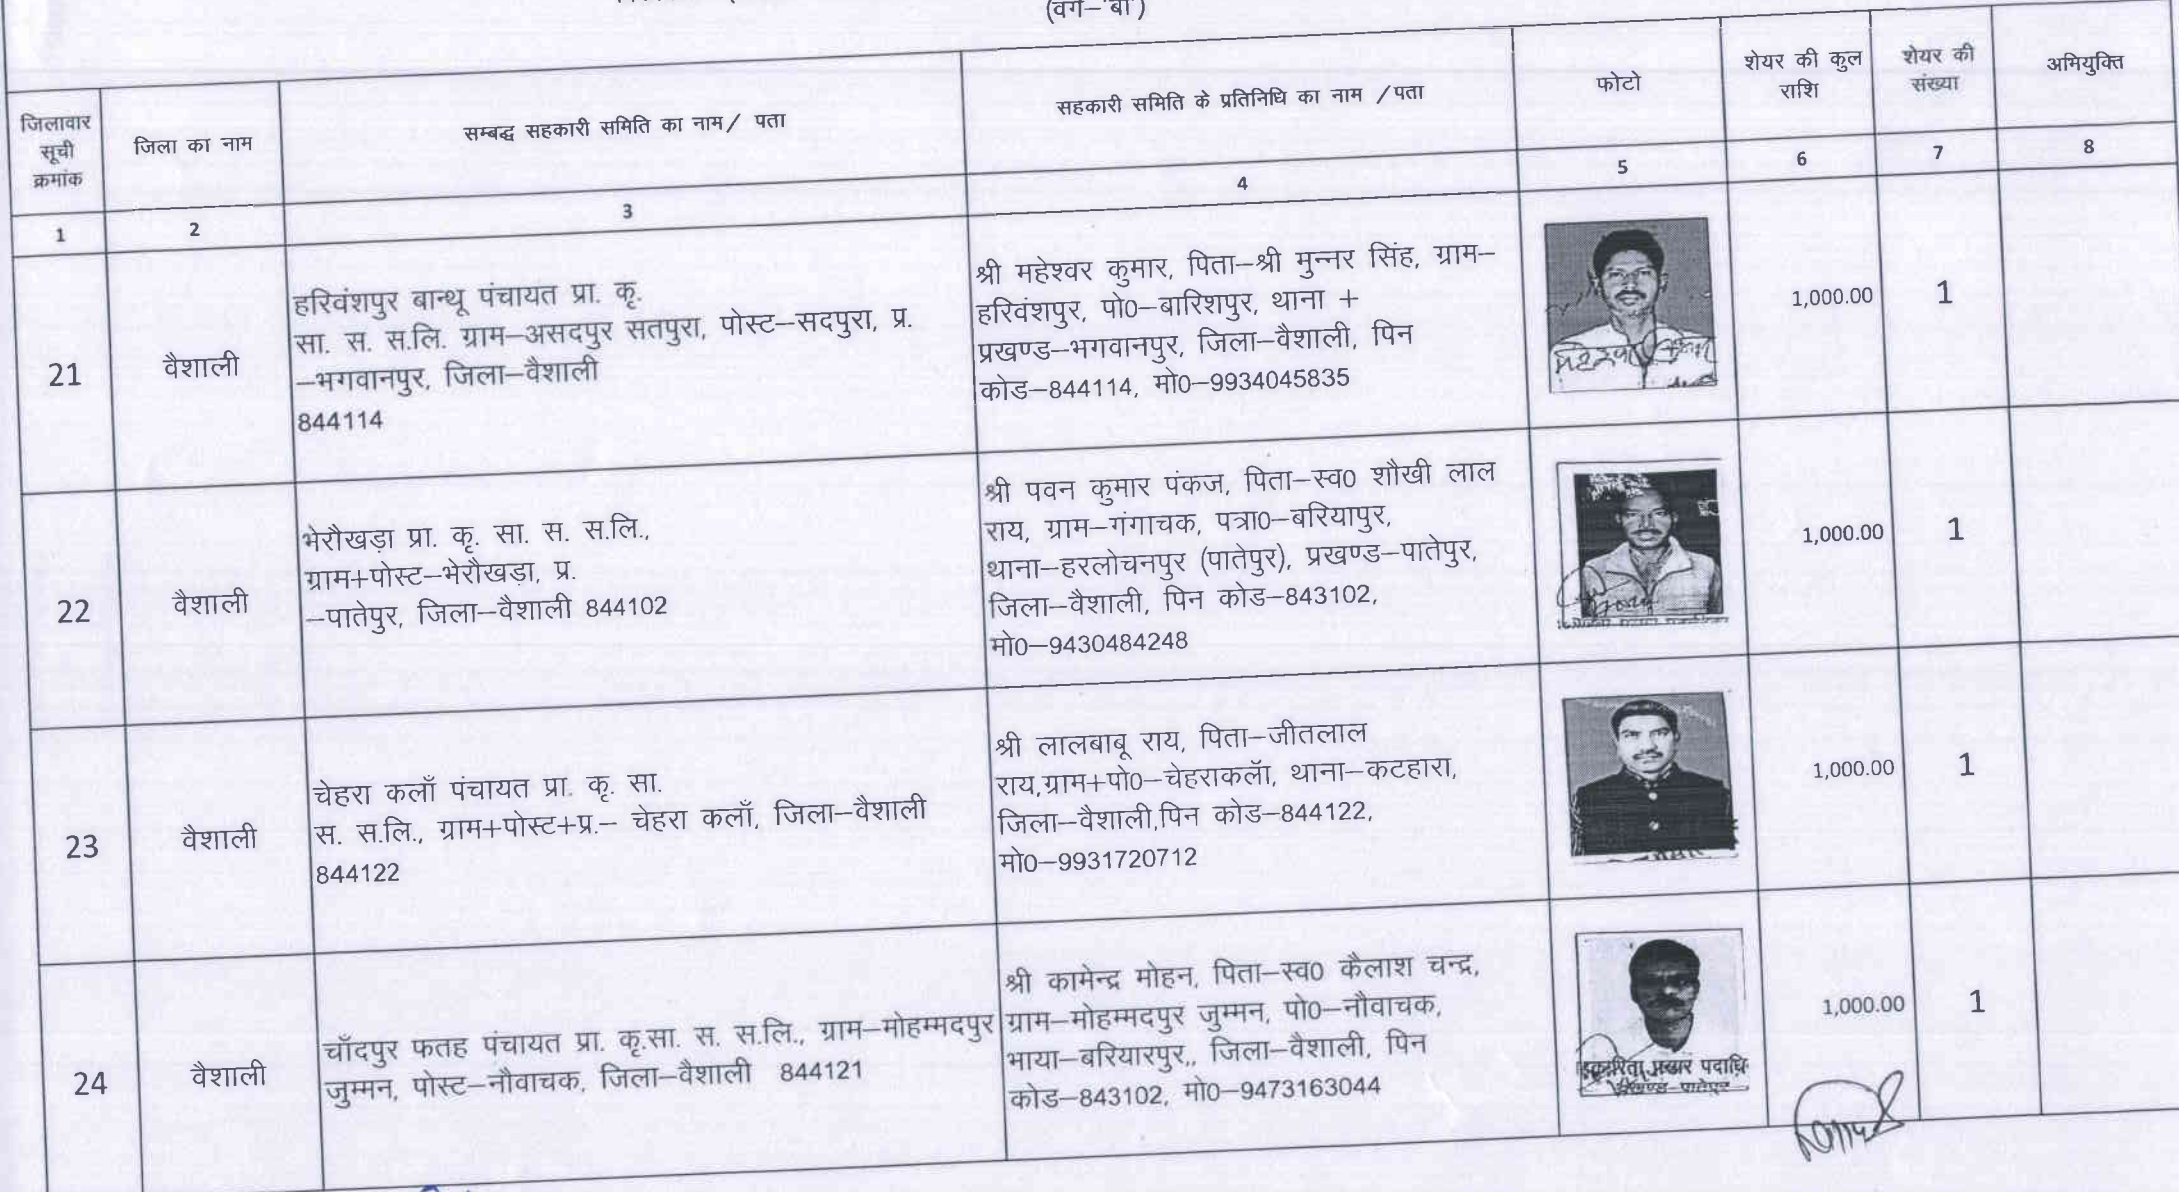 (वर्ग–'बी')
जिलावार
सूची
क्रमांक
जिला का नाम
सम्बद्ध सहकारी समिति का नाम/ पता
सहकारी समिति के प्रतिनिधि का नाम /पता
फोटो
शेयर की कुल
राशि
शेयर की
संख्या
अभियुक्ति
1
2
3
4
5
6
7
8
21
वैशाली
हरिवंशपुर बान्थू पंचायत प्रा. कृ.
सा. स. स.लि. ग्राम–असदपुर सतपुरा, पोस्ट–सदपुरा, प्र.
–भगवानपुर, जिला–वैशाली
844114
श्री महेश्वर कुमार, पिता–श्री मुन्नर सिंह, ग्राम–
हरिवंशपुर, पो0–बारिशपुर, थाना +
प्रखण्ड–भगवानपुर, जिला–वैशाली, पिन
कोड–844114, मो0–9934045835
1,000.00
1
22
वैशाली
भेरौखड़ा प्रा. कृ. सा. स. स.लि.,
ग्राम+पोस्ट–भेरौखड़ा, प्र.
–पातेपुर, जिला–वैशाली 844102
श्री पवन कुमार पंकज, पिता–स्व0 शौखी लाल
राय, ग्राम–गंगाचक, पत्रा0–बरियापुर,
थाना–हरलोचनपुर (पातेपुर), प्रखण्ड–पातेपुर,
जिला–वैशाली, पिन कोड–843102,
मो0–9430484248
1,000.00
1
23
वैशाली
चेहरा कलाँ पंचायत प्रा. कृ. सा.
स. स.लि., ग्राम+पोस्ट+प्र.– चेहरा कलाँ, जिला–वैशाली
844122
श्री लालबाबू राय, पिता–जीतलाल
राय,ग्राम+पो0–चेहराकलॉ, थाना–कटहारा,
जिला–वैशाली,पिन कोड–844122,
मो0–9931720712
1,000.00
1
24
वैशाली
चाँदपुर फतह पंचायत प्रा. कृ.सा. स. स.लि., ग्राम–मोहम्मदपुर
जुम्मन, पोस्ट–नौवाचक, जिला–वैशाली 844121
श्री कामेन्द्र मोहन, पिता–स्व0 कैलाश चन्द्र,
ग्राम–मोहम्मदपुर जुम्मन, पो0–नौवाचक,
भाया–बरियारपुर,, जिला–वैशाली, पिन
कोड–843102, मो0–9473163044
प्रसार पदाधि
–पातेपुर
1,000.00
1